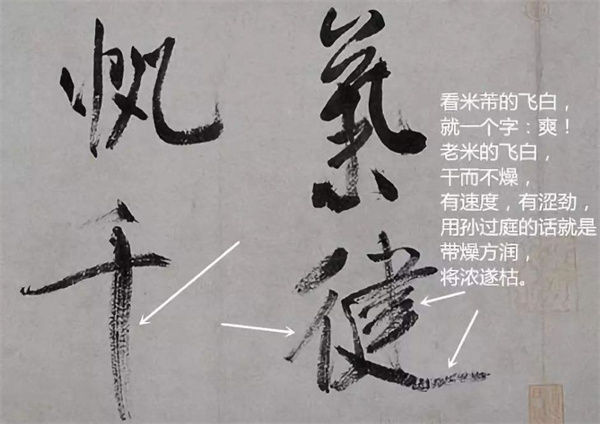 氣健
帆千
看米芾的飞白，
就一个字：爽！
老米的飞白，
干而不燥，
有速度，有涩劲，
用孙过庭的话就是
带燥方润，
将浓遂枯。